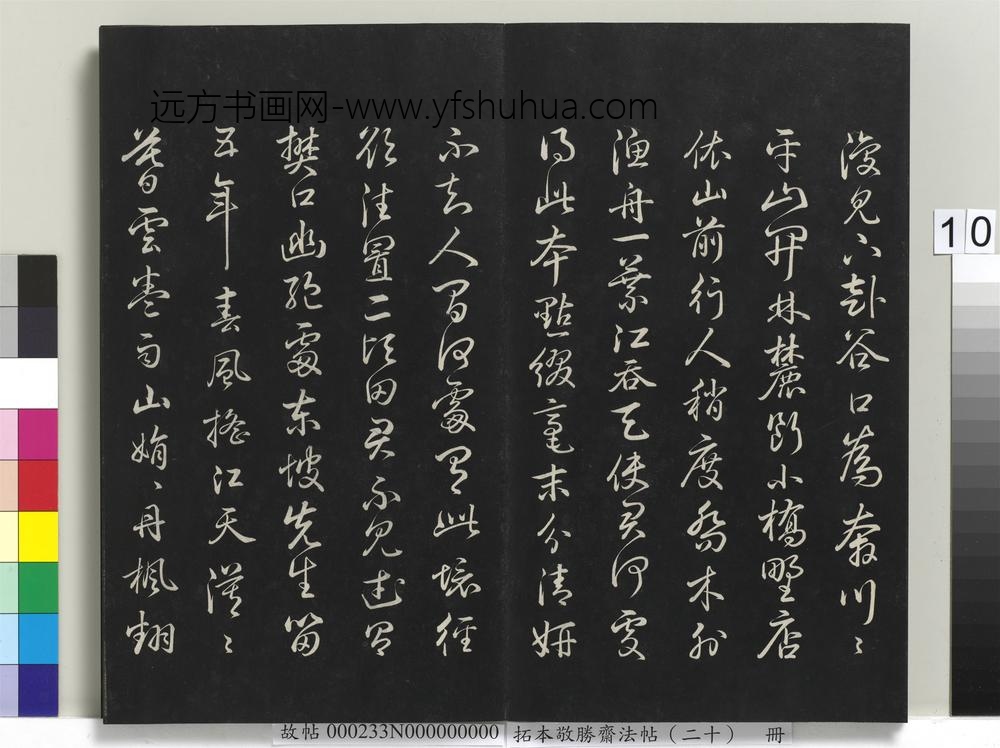 远方书画网-www.yfshuhua.com
復見下赴谷口為奔川〻
平山開林麓斷小橋野店
依山前行人稍度喬木外
漁舟一葉江吞天使君何處
得此本點綴毫末分清妍
不知人間何處有此境徑
欲往置二頃田君不見武昌
樊口幽絕處東坡先生留
五年春風搖江天漠〻
暮雲卷雨山娟〻丹楓翻
10
故帖 000233N000000000 拓本敬勝齋法帖（二十） 冊